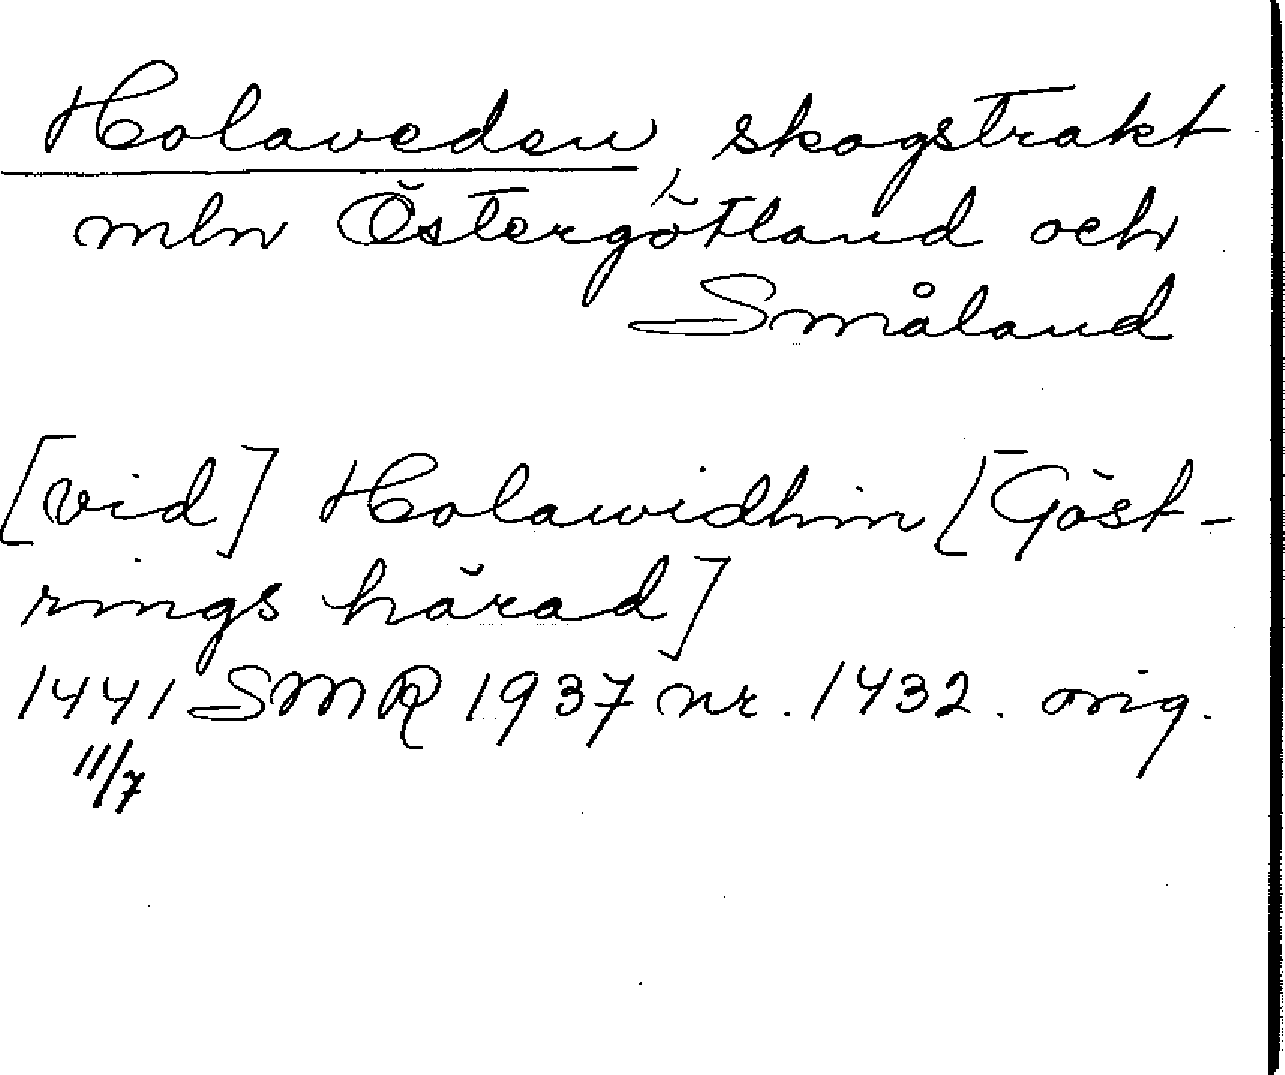 Holaveden, skogstrakt
mln Östergötland och
Småland
[vid] Holawidhin [Göst-
rings härad]
1441 SMR 1937 nr. 1432. orig.
11/7